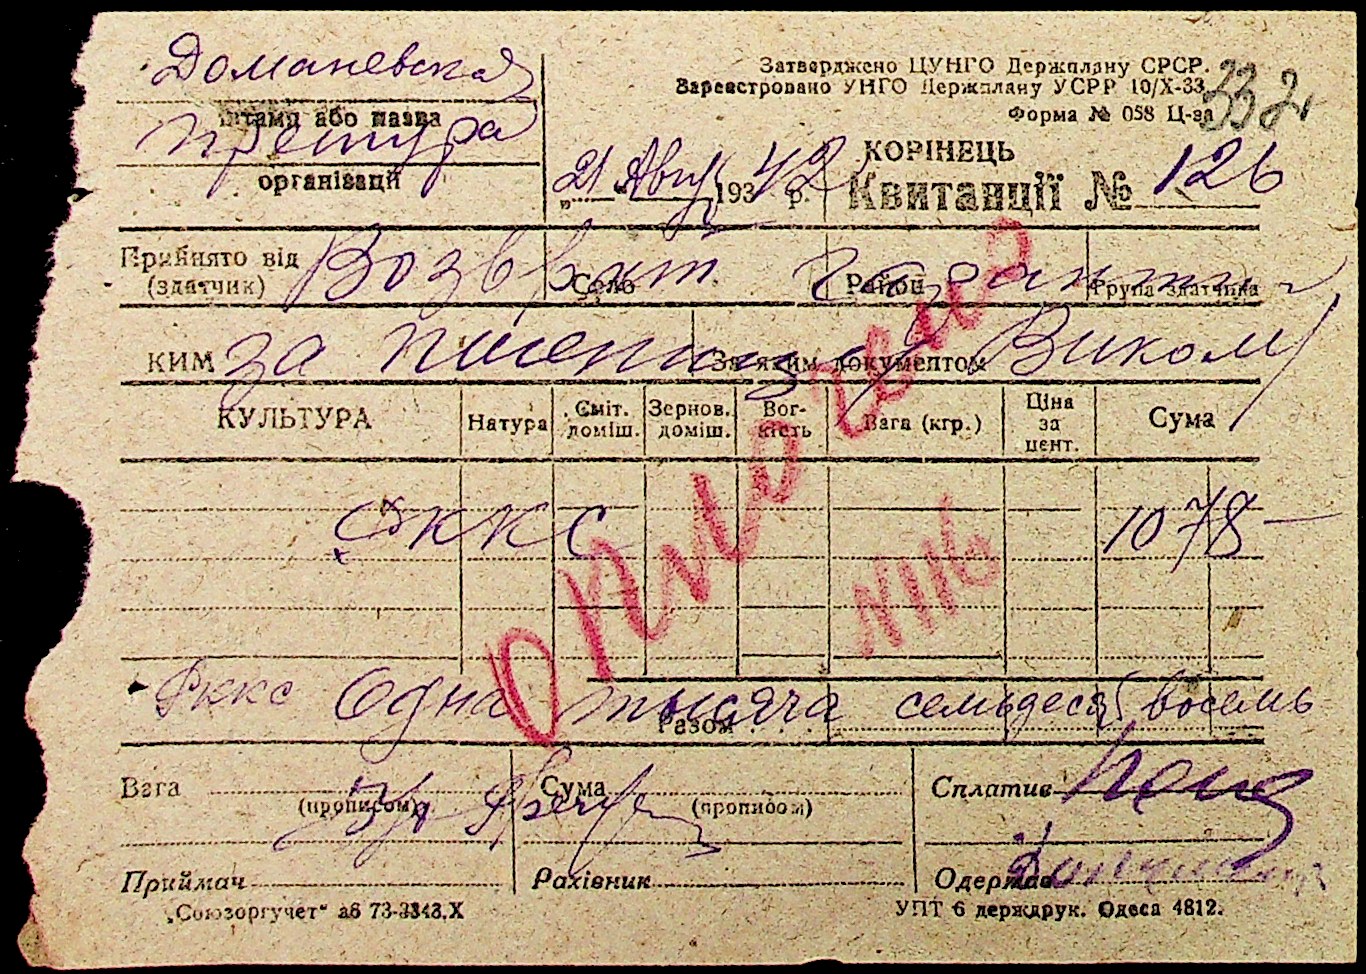 Доманевская
Штамп або назва
претура
організації
Затверджено ЦУНГО Держплану СРСР.
Зареєстровано УНГО Держплану УСРР 10/X-33
Форма № 058 Ц-за
332
21 Авг 193 42 р.
КОРІНЕЦЬ
Квитанції № 126
Прийнято від Возврат гарантии
(здатчик) Село Район Група здатчика
КИМ за пшеницу За яким документом Викому
КУЛЬТУРА Натура Сміт. доміш. Зернов. доміш. Вог-кість Вага (кгр.) Ціна за цент. Сума
ФККС 1078 —
Оплочено
N 116
Рккс Одна тысяча семьдесят восемь
Разом . . . .
Вага (прописом) Сума (прописом) Сплатив
Приймач Рахівник Одержав
„Союзоргучет“ зб 73-3343.X УПТ 6 держдрук. Одеса 4812.